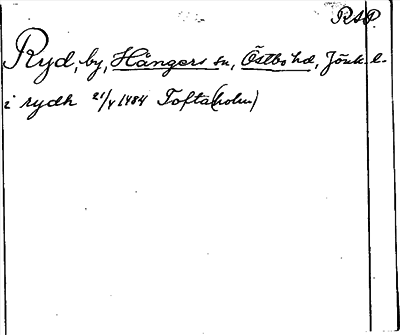 RAP.
Ryd, by, Hångers sn, Östbo hd, Jönk l.
i rydh 21/4 1484 Tofta(holm)